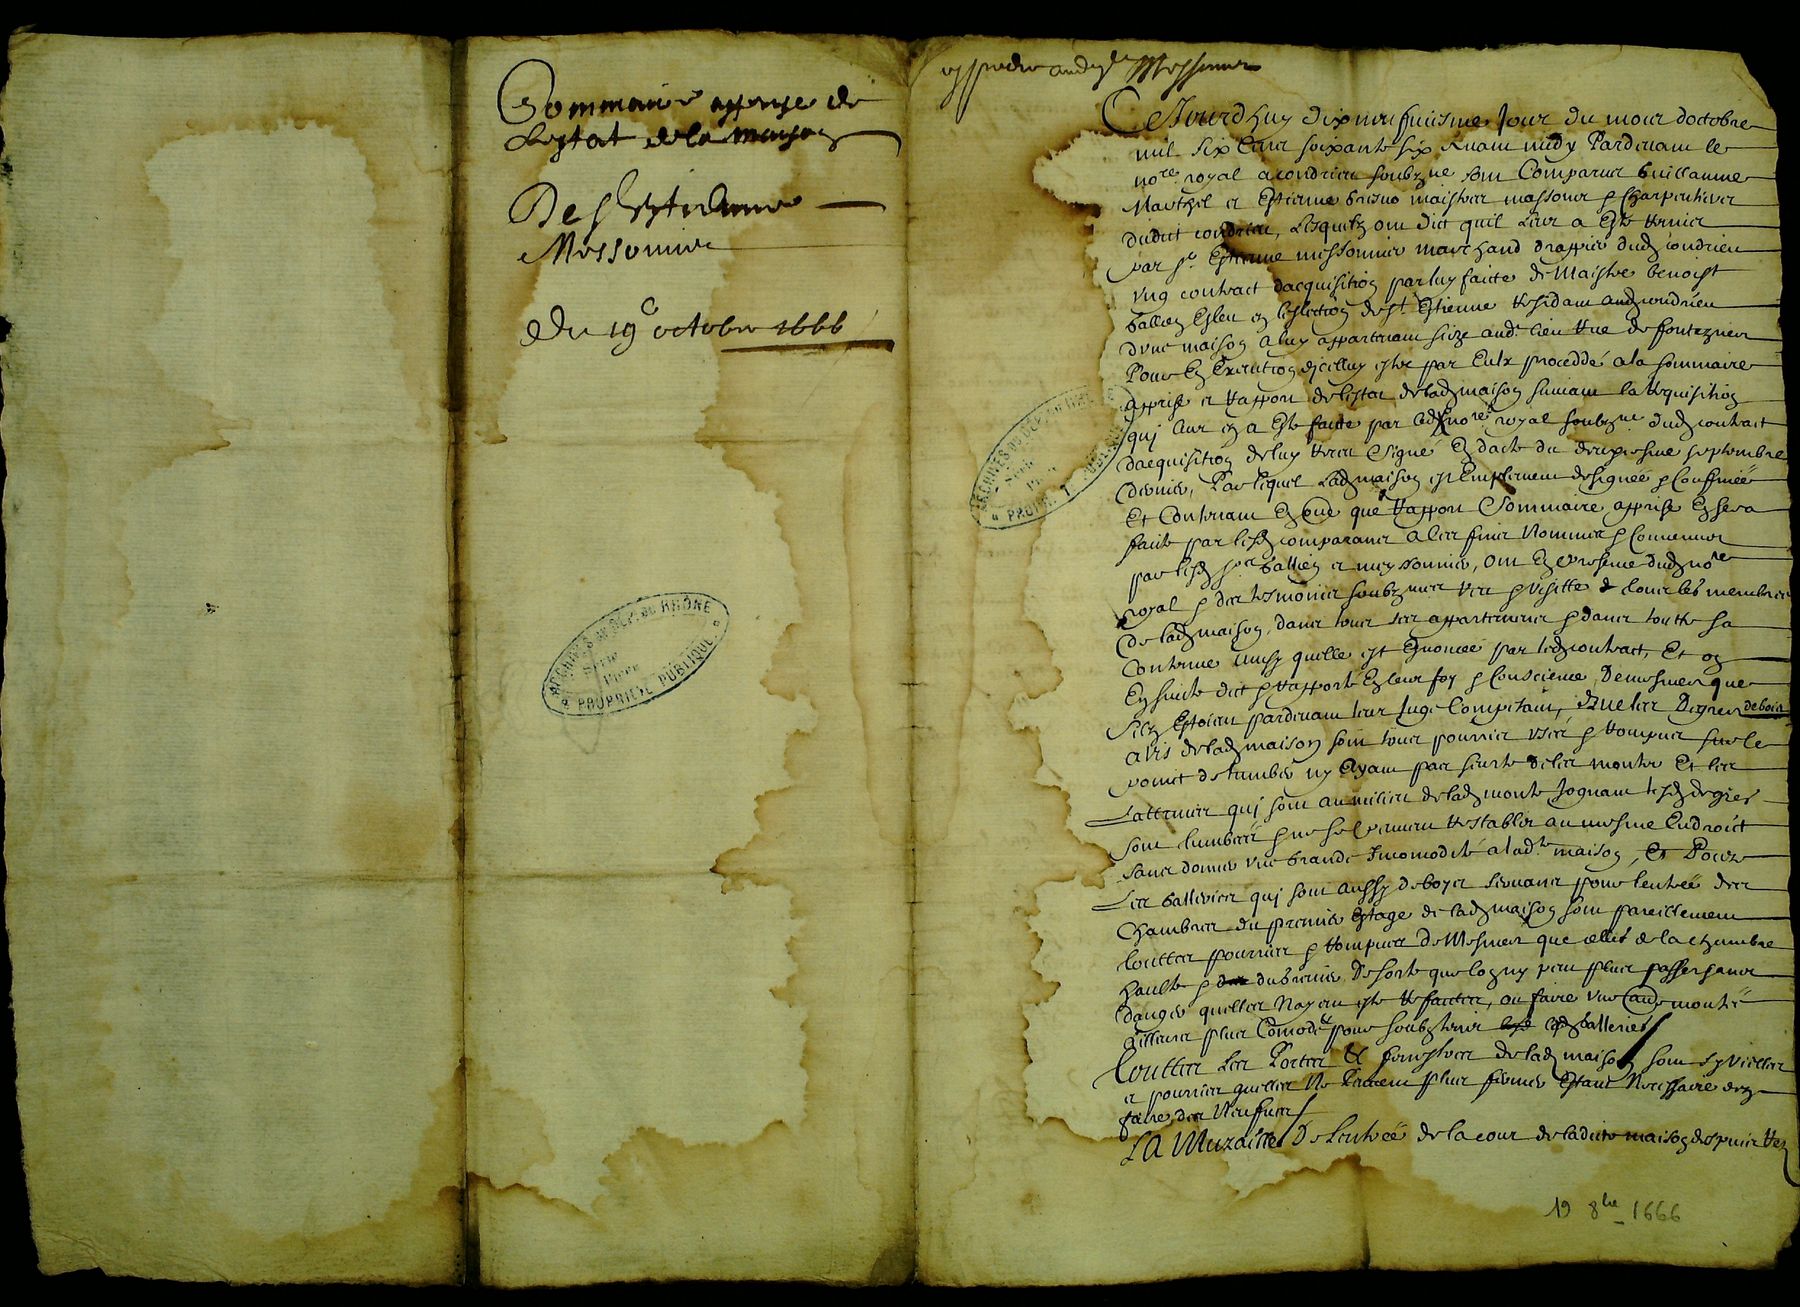 Sommaire apprise de
Lestat de la maison
De sr Estienne
Messonnier
Du 19e octobre 1666
ARCHIVES DU DEP. DU RHÔNE
Série
Pièce
PROPRIÉTÉ PUBLIQUE
Messonnier
Cejourdhuy dix neufviesme Jour du mois doctobre
mil six cens soixante six avant midy Pardevant le
nore royal a condrieu soubzne sont Comparus Guillaume
Marthel et Estienne maistres massons & Charpentiers
dudict condrieu, Lesquelz ont dict quil Leur a Este
par sr Estienne messonnier marchand drappier dudt condrieu
ung contract dacquisition par luy faicte de Maistre benoist
ballien Esleu en leslection de st Estienne Residant audt condrieu
dune maison a luy appartenant size audt lieu Rue de
Pour En Execution dicelluy estre par Eulx proceddé a la sommaire
apprise et Rapport de lestat de ladt maison suivant la Requisition
quj leur en a Este faicte par ledt nore royal soubzne dudt contract
dacquisition de luy Signé En dacte du deuxiesme septembre
dernier, Par lequel Ladt maison est Emplement designée & Confinée
Et Contenant En que Rapport Sommaire apprise En sera
faicte par lesdt comparans a ces fins Nommés & Convenus
par lesdt srs ballien et messonnier, ont En presence dudt nore
royal & des tesmoins soubznes veu & visitte tous les membres
de ladt maison, dans tous ses appartenens & dans toutte sa
Contenue ainsy quelle est Enoncée par ledt contract, Et on
En suitte dict & rapporté En leur foy & Conscience, De mesmes que
silz Estoient pardevant leur Juge Competant, Que les Degres de bois
a vis de ladt maison sont tous pourris usés & Rompus sur le
point de tumber ny Ayant pas seurte de les monter Et les
Latrines quj sont au milieu de ladt monte Jognant lesdt degres
sont tumbées & ne se peuvent Restablir au mesme Endroict
sans donner une Grande Incomodité a ladte maison, Et Pour
Les Galleries quj sont aussy de boys servans pour lentrée des
Chambres du premier Estage de ladt maison sont pareillement
touttes pourries & Rompues De Mesmes que celles de la chambre
haulte & du Grenier, De sorte que lon ny peu plus passer sans
danger quelles Nayent este Refaictes, ou faire une monté
ailleurs plus Comode pour soubztenir lesdt Galleries
Touttes Les Portes & fenestres de ladt maison sont sy vielles
et pourries quelles Ne Peuvent plus fermer Estant Necessaire den
faire des Neufves
LA Muraille De Lentrée de la cour de ladicte maison despuis
19 8bre 1666